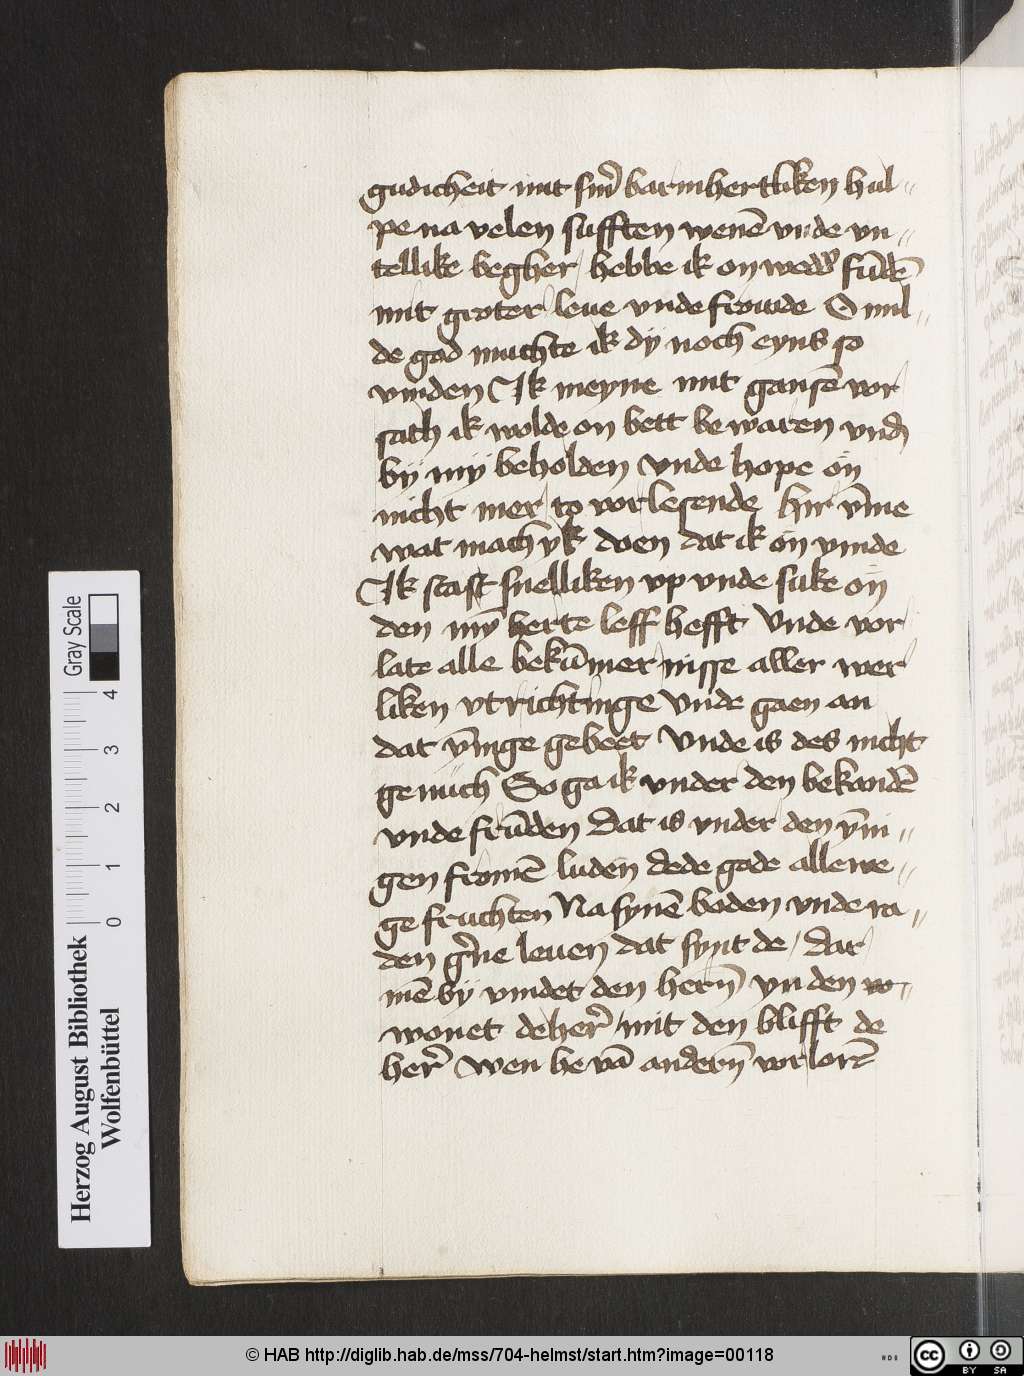 gudicheit mit sin̄ barmhertliken hul-
pe na velen sufften wenē vnde vn-
tellike begher / hebbe ik on wedd' fūdē
mit groter leue vnde frouwde O mil-
de god muchte ik dÿ noch eyns so
vinden Ik meyne mit gansē vor
sath ik wolde on bett be waren vnd
bÿ mÿ beholden vnde hope on
nicht mer to vorlesende hir v̄me
wat mach yk doen dat ik on vinde
Ik sta snelliken vp vnde suke on
den mȳ herte leff hefft Vnde vor
late alle bekūmer nisse aller wer
liken vtrichtinge Vnde gaen an
dat ȳnige gebeet Vnde is des nicht
genuch So ga ik vnder den bekandē
vnde frūden Dat is vnder den ȳni-
gen fromē luden dede gode allewe-
ge fruchten Na synē boden vnde ra-
den g'ne leuen dat synt de / dar
mē bÿ vindet den hern̄ yn den
wonet de her' / mit den blifft de
her' wen he vā andern̄ vorlorē
Gray Scale
0 1 2 3 4
Herzog August Bibliothek
Wolfenbüttel
© HAB http://diglib.hab.de/mss/704-helmst/start.htm?image=00118
cc BY SA